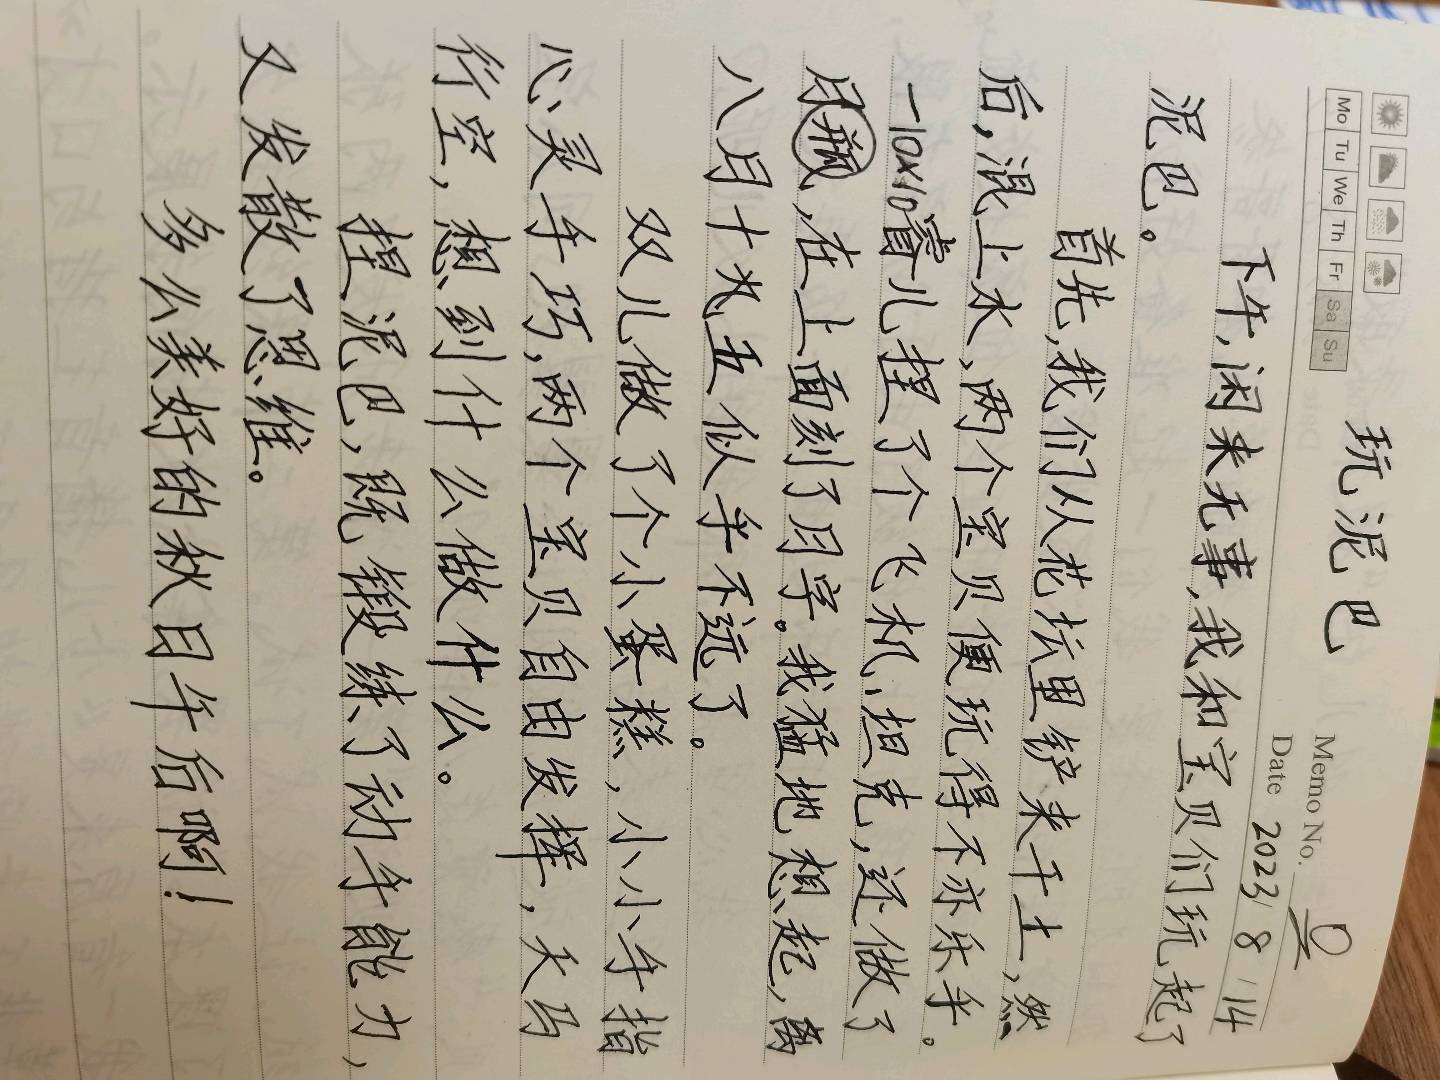 玩泥巴
Mo Tu We Th Fr Sa Su
Memo No.
Date 2023/8/14
下午,闲来无事,我和宝贝们玩起了
泥巴。
首先,我们从花坛里铲来干土,然
后,混上水,两个宝贝便玩得不亦乐乎。
睿儿捏了个飞机,坦克,还做了
一10×10
月瓶,在上面刻了月字。我猛地想起,离
八月十九五似乎不远了。
双儿做了个小蛋糕,小小手指
心灵手巧,两个宝贝自由发挥,天马
行空,想到什么做什么。
捏泥巴,既锻练了动手能力,
又发散了思维。
多么美好的秋日午后啊!